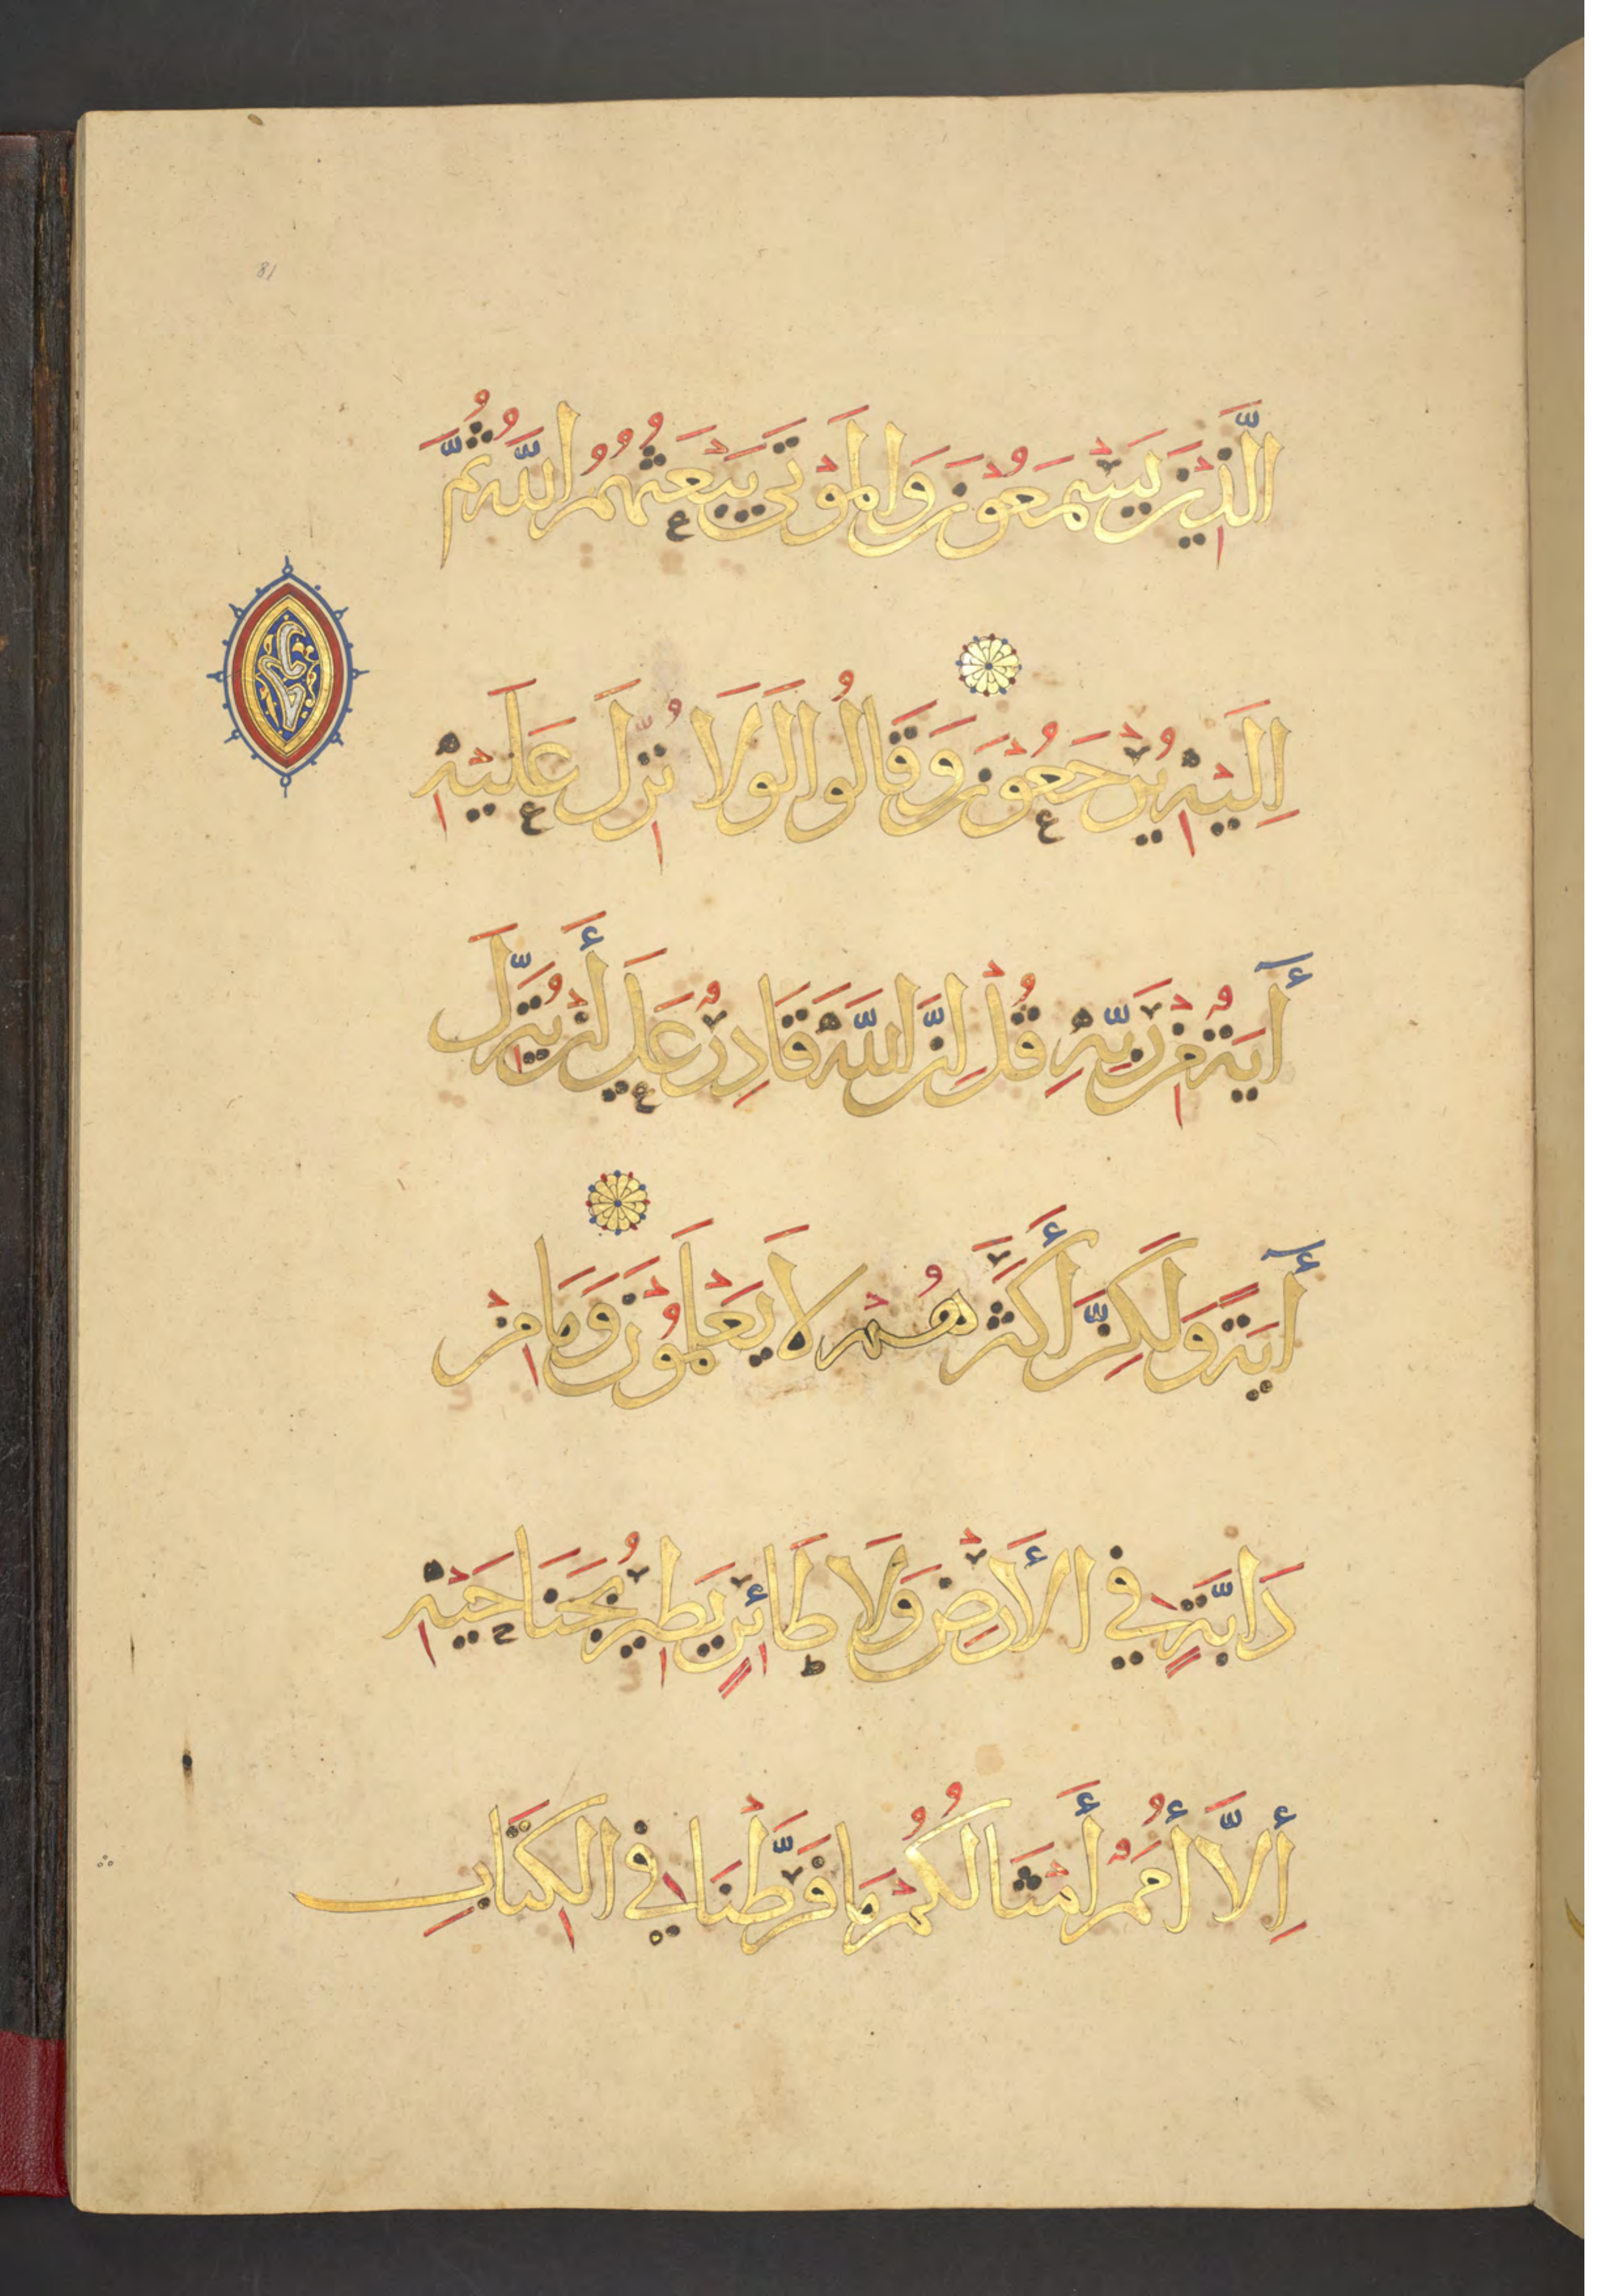 الَّذِيْنَ يَسْمَعُوْنَ وَالْمَوْتَى يَبْعَثُهُمُ اللَّهُ ثُمَّ
اِلَيْهِ يُرْجَعُوْنَ وَقَالُوا لَوَلَا نُزِّلَ عَلَيْهِ
أٓيَةٌ مِنْ رَبِّهِ قُلْ اِنَّ اللَّهَ قَادِرٌ عَلَي أَنْ يُنَزِّلَ
أٓيَةً وَلَكِنَّ أَكْثَرَهُمْ لَا يَعْلَمُوْنَ وَمَا مِنْ
دَابَّةٍ فِي الأَرْضِ وَلَا طَائِرٍ يَطِيْرُ بِجَنَاحَيْهِ
اِلَّا أُمَمٌ أَمْثَالُكُمْ مَا فَرَّطْنَا فِي الْكِتَابِ
81